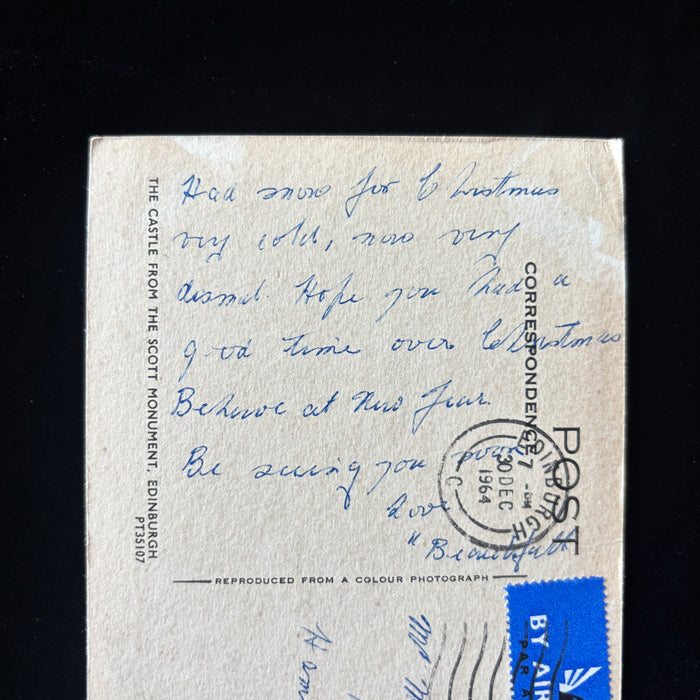 Had snow for Christmas
very cold, now very
dismal. Hope you had a
good time over Christmas
Behave at New Year.
Be seeing you soon
Love
"Beautiful"
THE CASTLE FROM THE SCOTT MONUMENT, EDINBURGH
PT35107
CORRESPONDENCE
POST
EDINBURGH
7 - PM
30 DEC
1964
C
REPRODUCED FROM A COLOUR PHOTOGRAPH
BY AIR
PAR A